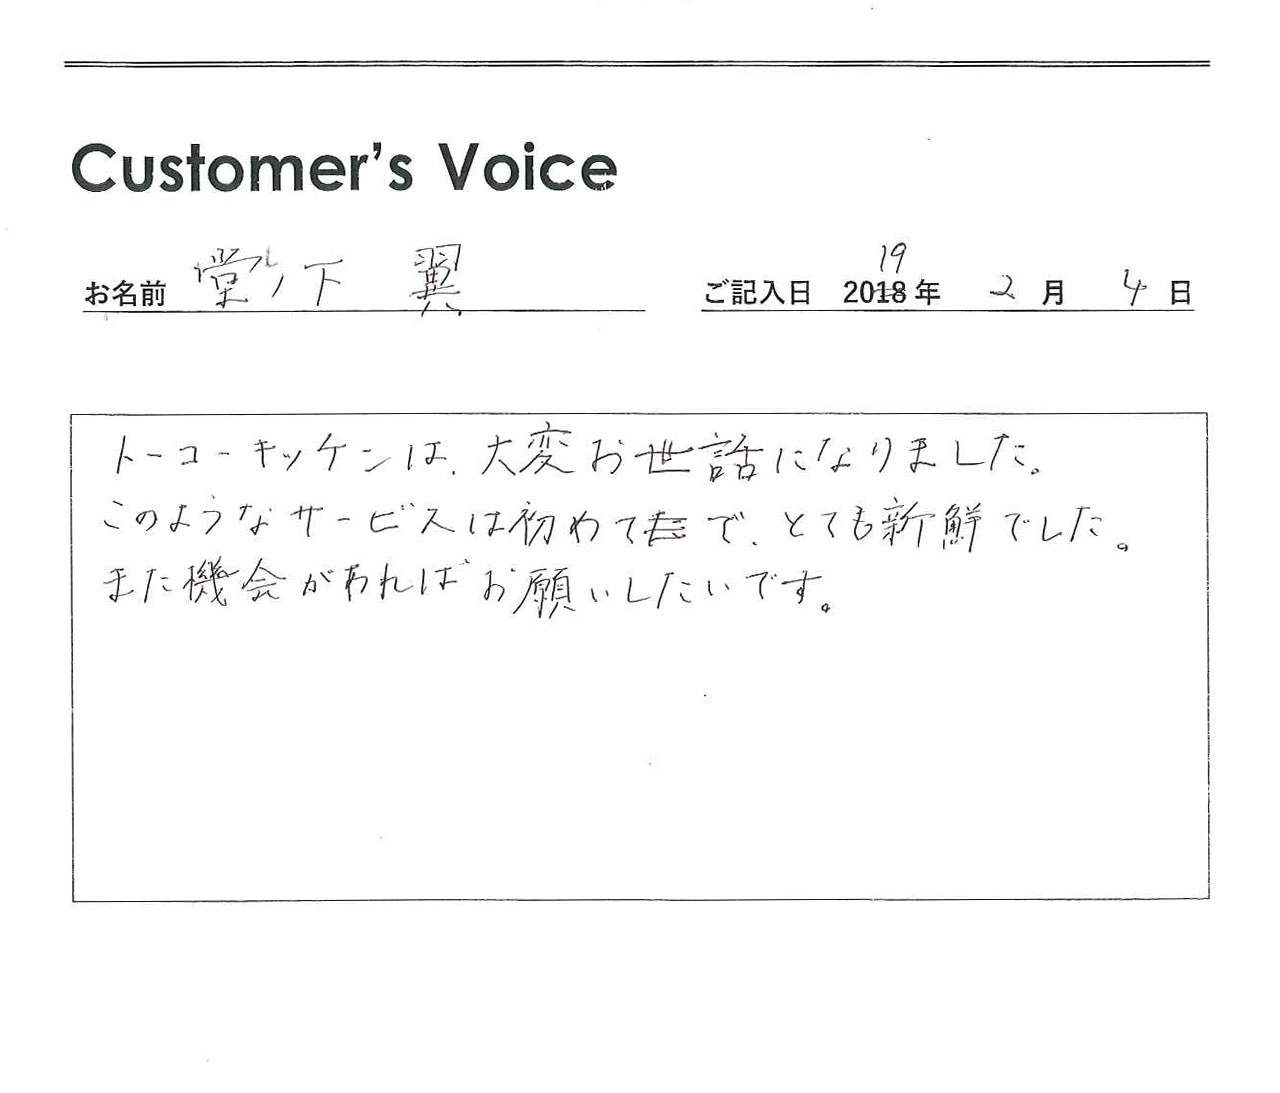 Customer's Voice
お名前 堂ノ下 翼
19
ご記入日 2018年 2月 4日
トーコーキッケンは、大変お世話になりました。
このようなサービスは初めてで、とても新鮮でした。
また機会があればお願いしたいです。